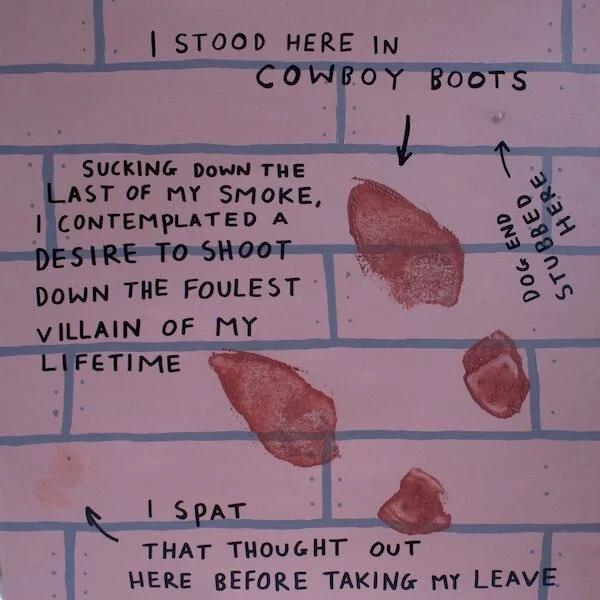 I STOOD HERE IN
COWBOY BOOTS
SUCKING DOWN THE
LAST OF MY SMOKE,
I CONTEMPLATED A
DESIRE TO SHOOT
DOWN THE FOULEST
VILLAIN OF MY
LIFETIME
DOG END
STUBBED
HERE
I SPAT
THAT THOUGHT OUT
HERE BEFORE TAKING MY LEAVE